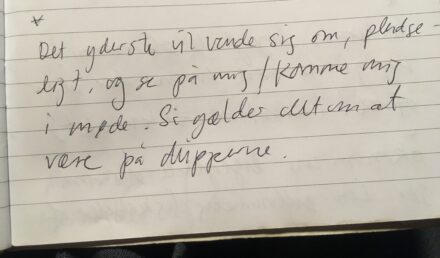 *
Det yderste vil vende sig om, pludse-
ligt, og se på mig / komme mig
i møde. Så gælder det om at
være på dupperne.